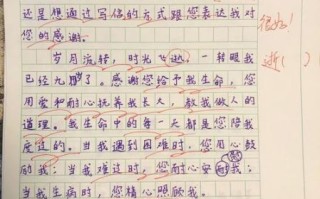 还是想通过写信的方式跟您表达我对
您的感谢。
很好！
岁月流转，时光飞逝。一转眼我
逝（ ）
已经九岁了。感谢您给予我生命，您
用爱和耐心抚养我长大，教我做人的
道理。我生命中的每一天都是您陪我
度过的。当我遇到困难时，您用心鼓
励我；当我难过时，您耐心安慰我；
当我生病时，您精心照顾我。